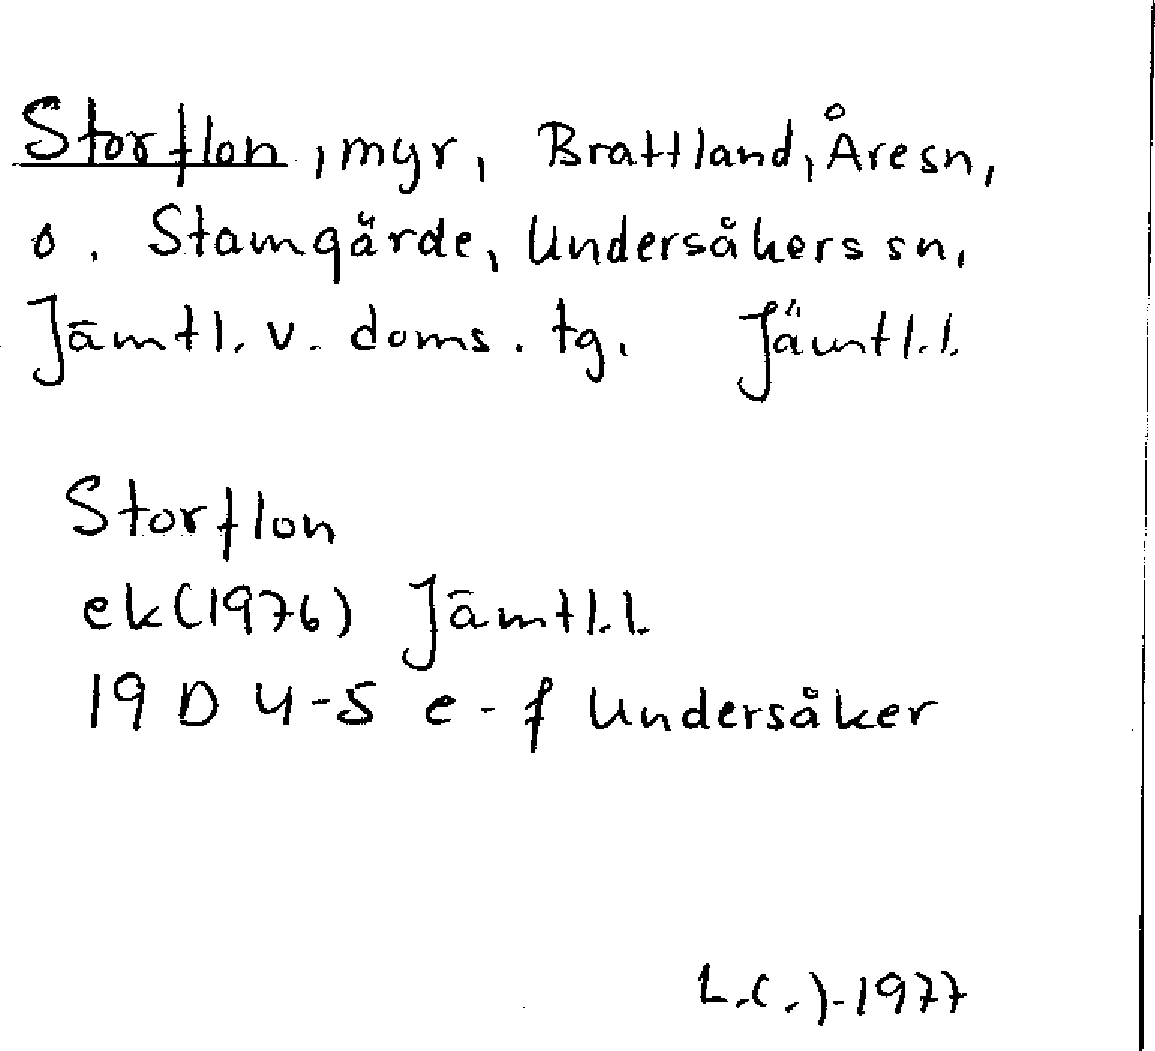 Storflon, myr, Brattland, Åre sn,
o. Stamgärde, Undersåkers sn,
Jämtl. v. doms. tg. Jämtl.l.
Storflon
ek (1976) Jämtl.l.
19 D 4-5 e-f Undersåker
1977